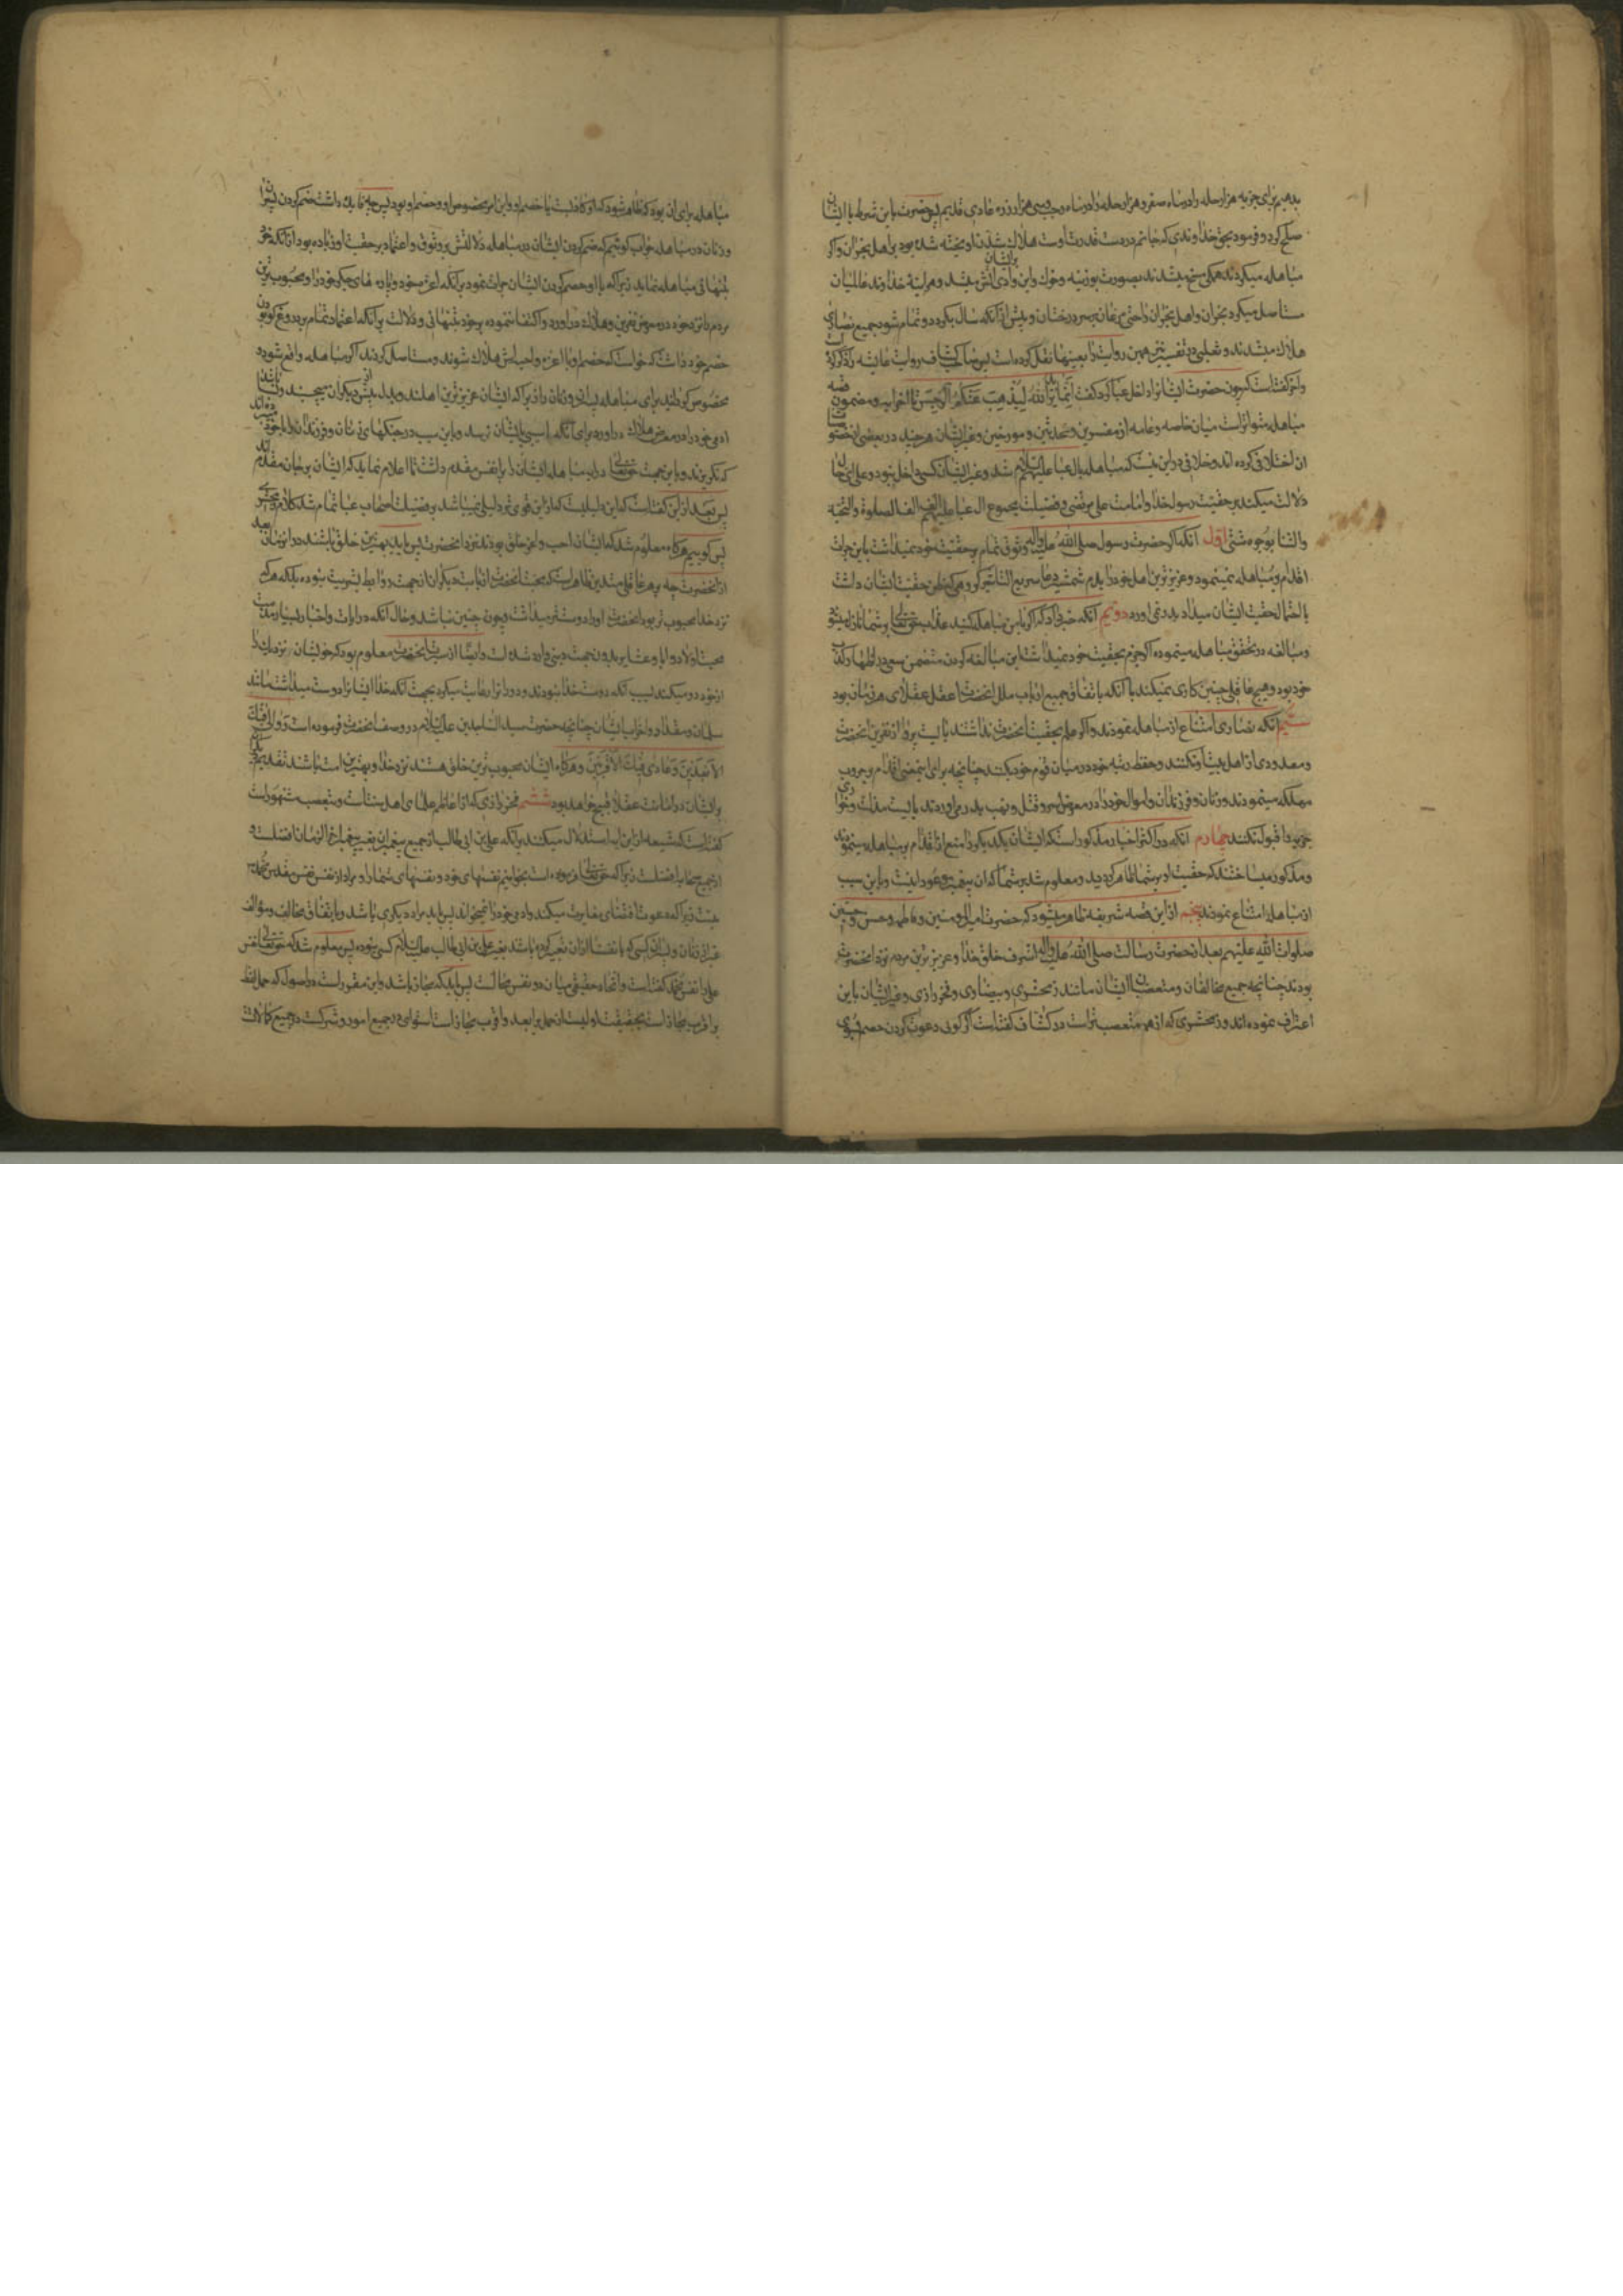 بدهیم برای جزیه هزار حله را در ماه صفر و هزار حله را در ماه رجب و سی هزار زره عادی قدیم پس حضرت باین شرط با ایشان
صلح کرد و فرمود بحق خداوندی که جانم در دست قدرت اوست هلاک شدن آویخته شده بود بر اهل نجران و اگر
مباهله میکردند همکی مسخ میشدند بصورت بوزینه و خوک و این وادی بر ایشان آتش میشد و هراینه خداوند عالمیان
مستاصل میکرد نجران و اهل نجران را حتی مرغان بر سر درختان و پیش از آنکه سال بگردد و تمام شود جمیع نصاری
هلاک میشدند و ثعلبی در تفسیر نیز همین روایت را بعینها نقل کرده است پس صاحب کشاف روایت عایشه را
و اخر کفته است که چون حضرت ایشانرا داخل عبا کرد کفت انما یرید الله لیذهب عنکم الرجس تا اخر آیه و مضمون قصه
مباهله متواتر است میان خاصه و عامه از مفسرین و محدثین و مورخین و غیر ایشان هر چند در بعضی از خصوصیات
ان اختلافی کرده اند و خلافی در این نیست که مباهله بآل عبا علیهم السلام شد و غیر ایشان کسی داخل نبود و علی ای حال
دلالت میکند بر حقیت رسول خدا و امامت علی مرتضی و فضیلت مجموع ال عبا علیهم الف الف الصلوة و التحیة
والثنا بوجوه شتی اول آنکه اگر حضرت رسول صلی الله علیه و اله وثوق تمام بر حقیت خود نمیداشت باین جرات
اقدام بر مباهله نمینمود و عزیزترین اهل خود را بدم شمشیر دعا سریع التاثیر کروهی که ظن حقیت ایشان داشت
یا احتمال حقیت ایشان میداد بدر نمی اورد دویم آنکه خبر داد که اگر با من مباهله کنید عذاب حقتعالی بر شما نازل میشود
و مبالغه در تحقق مباهله مینمود و اگر جزم بحقیت خود نمیداشت این مبالغه کردن متضمن سعی در اظهار کذب
خود بود و هیچ عاقلی چنین کاری نمیکند با آنکه باتفاق جمیع ارباب ملل انحضرت اعقل عقلای هر زمان بود
سیم آنکه نصاری امتناع از مباهله نمودند و اگر علم بحقیت انحضرت نداشتند بایست پروا از نفرین انحضرت
و معدودی از اهل بیت او نکنند و حفظ رتبه خود در میان قوم خود بکنند چنانچه برای همین معنی اقدام بر حروب
مهلکه مینمودند و زنان و فرزندان و اموال خود را در معرض اسر و قتل و نهب بدر می اوردند بایست مذلت و خواری
جزیه را قبول نکنند چهارم آنکه در اکثر اخبار مذکور است که ایشان یکدیکر را منع از اقدام بر مباهله مینمودند
و مذکور میساختند که حقیت او بر شما ظاهر گردید و معلوم شد بر شما که ان پیغمبر موعود اینست و باین سبب
از مباهله امتناع نمودند پنجم از این قصه شریفه ظاهر میشود که حضرت امیرالمومنین و فاطمه و حسن و حسین
صلوات الله علیهم بعد از حضرت رسالت صلی الله علیه و اله اشرف خلق خدا و عزیزترین مردم نزد انحضرت
بودند چنانچه جمیع مخالفان و متعصبان ایشان مانند زمخشری و بیضاوی و فخر رازی و غیر ایشان باین
اعتراف نموده اند و زمخشری که از همه متعصب تر است در کشاف کفته است اگر کوئی دعوت کردن خصم بسوی
مباهله برای ان بود که ظاهر شود که او کاذبست یا خصم او و این امر مخصوص او و خصم او بود پس چه فایده داشت ضم کردن پسران
و زنان در مباهله جواب کوئیم که ضم کردن ایشان در مباهله دلالتش بر وثوق و اعتماد بر حقیت او زیاده بود از آنکه خود
بتنهائی مباهله نماید زیرا که با او ضم کردن ایشان جرات نمود بر آنکه اعزه خود و پاره های جکر خود را و محبوب ترین
مردم نزد خود در معرض نفرین و هلاک در اورد و اکتفا ننمود بر خود بتنهائی و دلالت بر آنکه اعتماد تمام بر دروغ کو بودن
خصم خود داشت که خواست که خصم او با اعزه و احبایش هلاک شوند و مستاصل کردند اگر مباهله واقع شود و
مخصوص کردانید برای مباهله پسران و زنان را زیرا که ایشان عزیزترین اهلند و بدل بیش از دیکران میچسبند و بسا باشد
ادمی خود را در معرض هلاک در اورد برای آنکه اسیبی بایشان نرسد و باین سبب در جنکها زنان و فرزندان را با خود میبرده اند
که نکریزند و باین جهت حقتعالی در ایه مباهله ایشان را بر انفس مقدم داشت تا اعلام نماید که ایشان بر جان مقدم اند
پس بعد از این کفته است که این دلیلیست که از این قوی تر دلیلی نمیباشد بر فضیلت اصحاب عبا تمام شد کلام زمخشری
پس کوییم هرکاه معلوم شد که ایشان احب و اعز خلق بودند نزد انحضرت پس باید بهترین خلق باشند در ان زمان بعد
از انحضرت چه بر هر عاقل متدین ظاهر است که محبت انحضرت از بابت دیکران از جهت روابط بشریت نبوده بلکه هر که
نزد خدا محبوب تر بود انحضرت او را دوستتر میداشت و چون چنین نباشد و حال آنکه در ایات و اخبار بسیار مذمت
محبت اولاد و ابا و عشایر بدون جهت دینی وارد شده است و ایضا از سیرت انحضرت معلوم بود که خویشان نزدیک را
از خود دور میکند بسبب آنکه دوست خدا نبودند و دورانرا رعایت میکرد بجهت آنکه خدا ایشانرا دوست میداشت مانند
سلمان و مقداد و اضراب ایشان چنانچه حضرت سید الساجدین علیه السلام در وصف انحضرت فرموده است و والی فیک
الابعدین و عادی فیک الاقربین و هرکاه ایشان محبوب ترین خلق هستند نزد خدا و بهترین امت باشند تقدیم دیکران
بر ایشان در امامت عقلا قبیح خواهد بود ششم فخر رازی که از اعاظم علمای اهل سنت است و بتعصب مشهور است
کفته است که شیعه از این ایه استدلال میکنند بر آنکه علی بن ابی طالب از جمیع پیغمبران بغیر پیغمبر اخر الزمان افضلست و
از جمیع صحابه افضلست زیرا که حقتعالی فرموده است بخوانیم نفسهای خود و نفسهای شما را و مراد از نفس نفس مقدس محمد
نیست زیرا که دعوت اقتضای مغایرت میکند و ادمی خود را نمیخواند پس باید مراد دیکری باشد و باتفاق مخالف و مؤالف
غیر از زنان و پسران کسی که بانفسنا از ان تعبیر کرده باشد بغیر علی بن ابی طالب علیه السلام کسی نبود پس معلوم شد که حقتعالی نفس
علی را نفس محمد کفته است و اتحاد حقیقی میان دو نفس محالست پس باید که مجاز باشد و این مقرر است در اصول که حمل لفظ
بر اقرب مجازات بحقیقت اولیست از حمل بر ابعد و اقرب مجازات استوای در جمیع امور و شرکت در جمیع کمالات